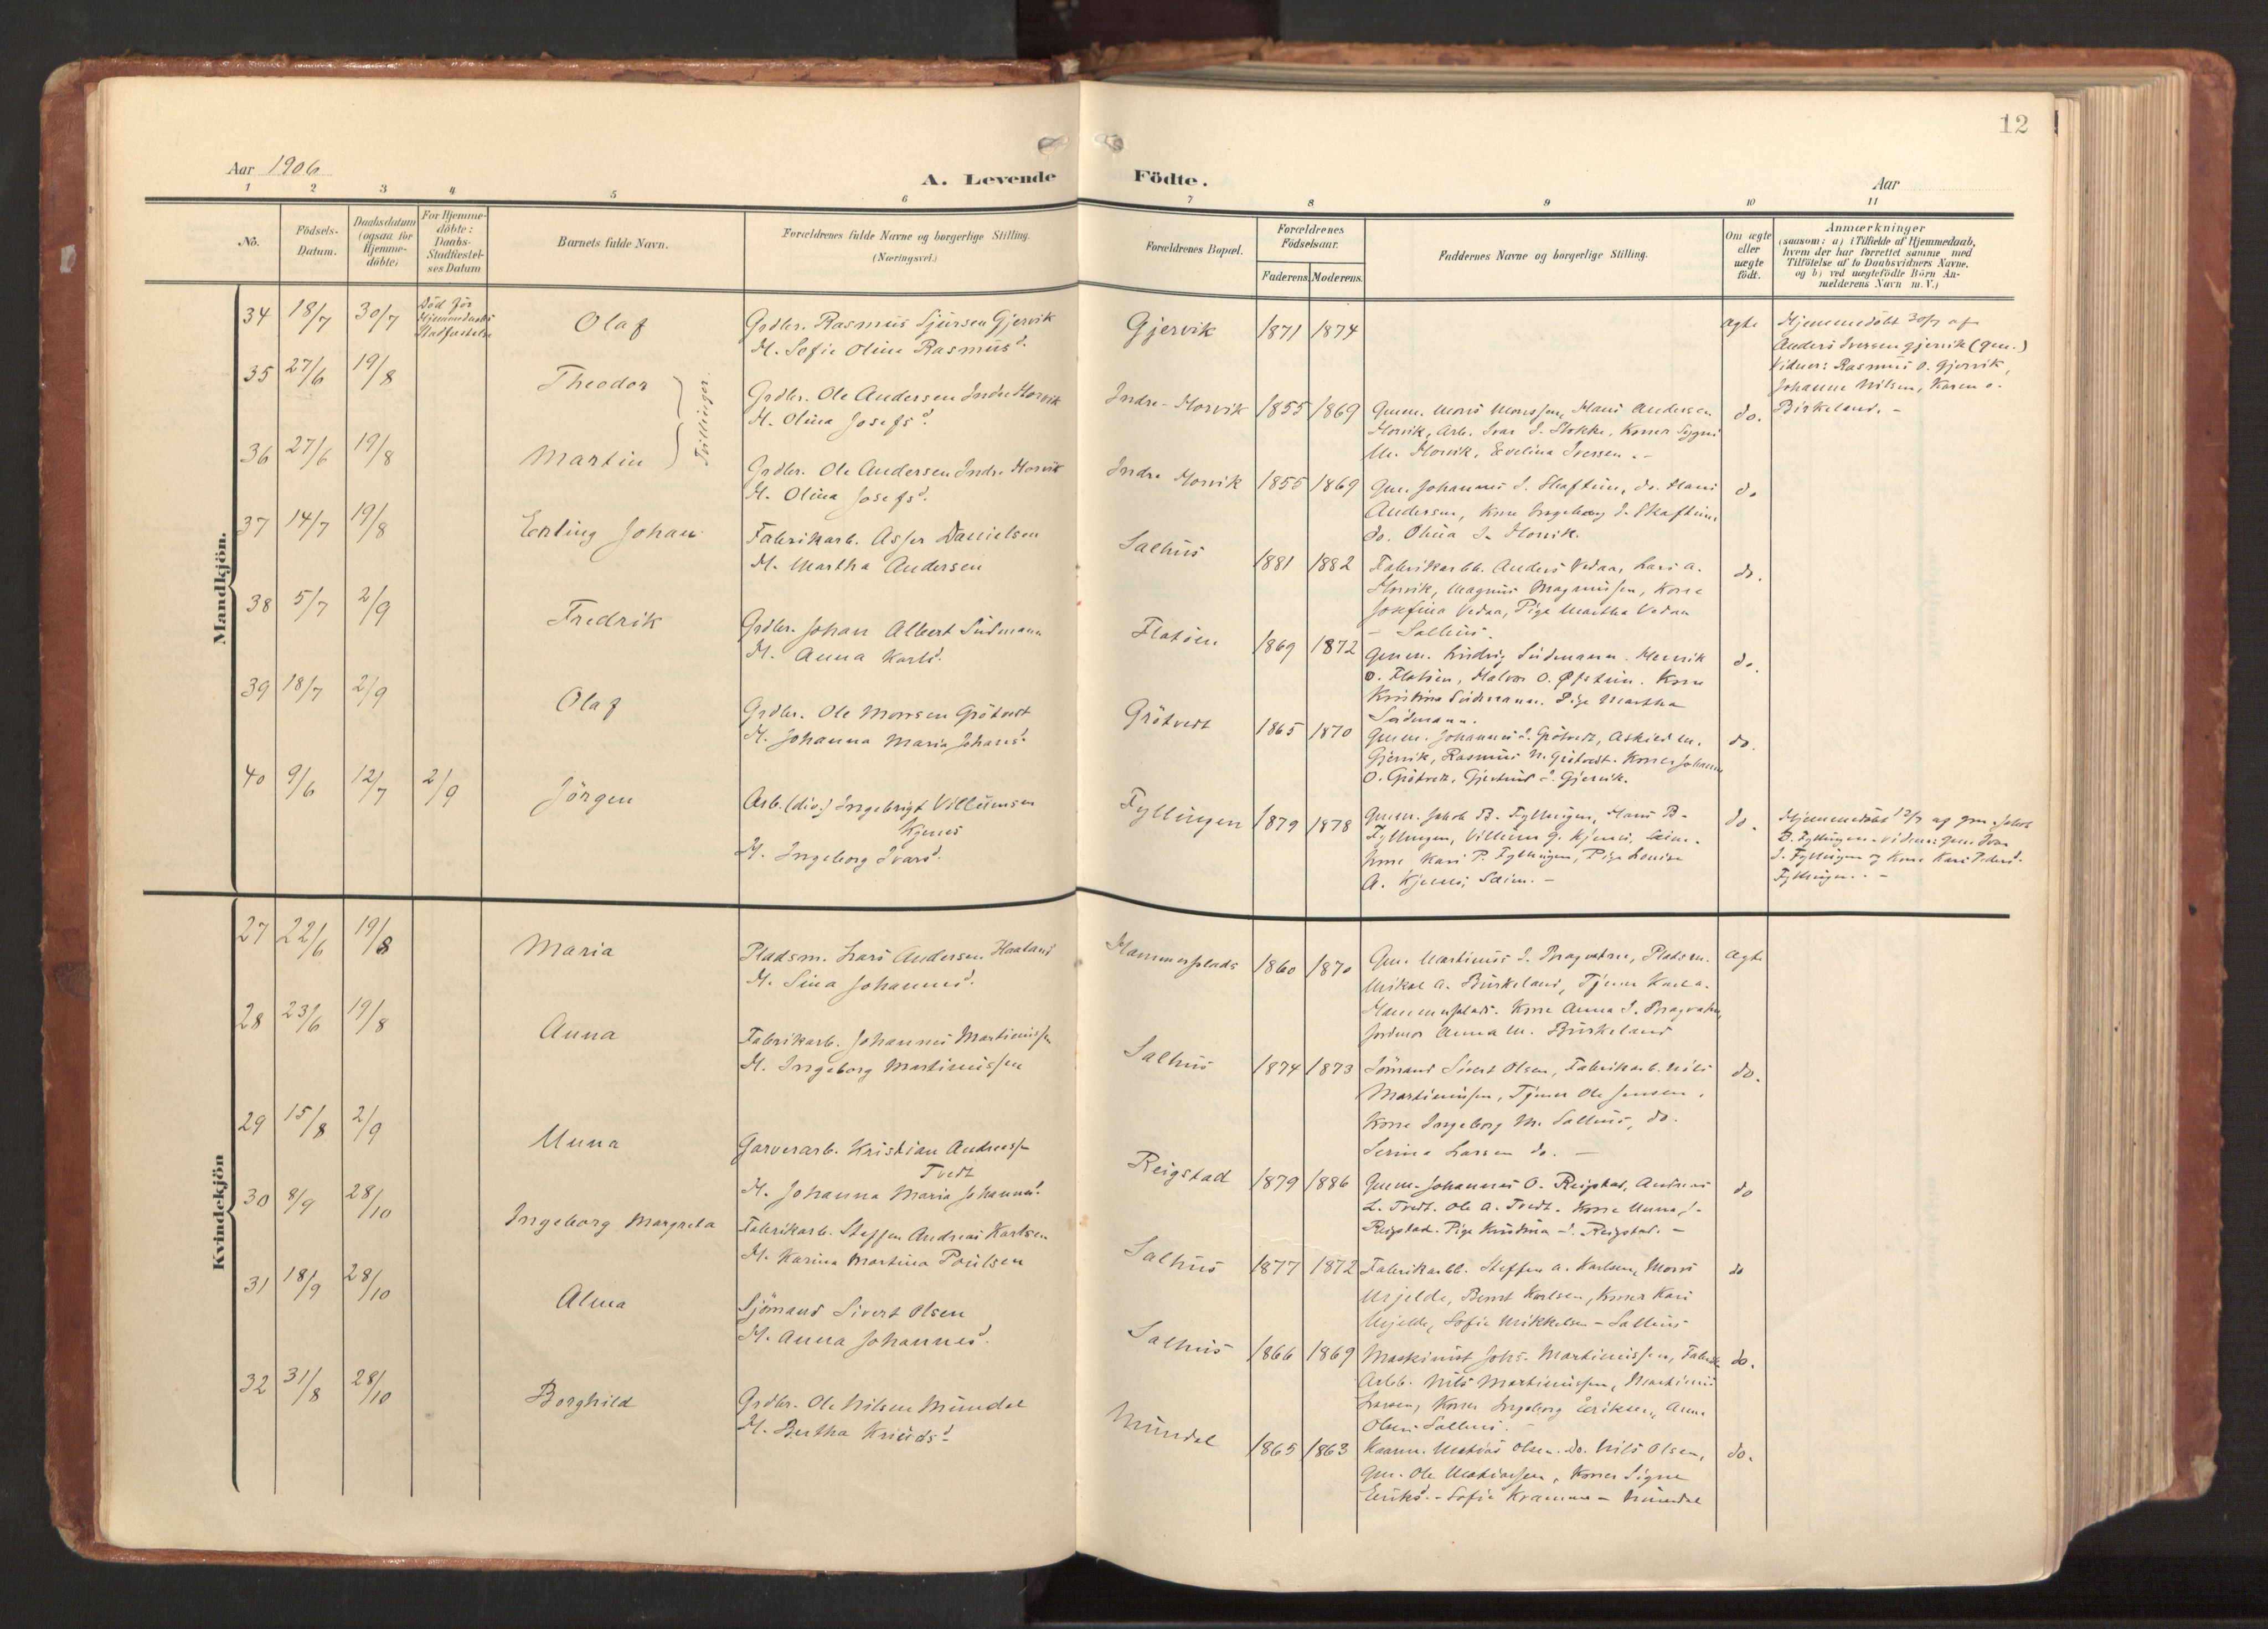 12
Aar 1906
A. Levende Födte.
Aar
1 2 3 4 5 6 7 8 9 10 11
No.
Födsels-
Datum.
Daabsdatum
(ogsaa for
Hjemme-
döbte)
For Hjemme-
döbte:
Daabs-
Stadfæstel-
ses Datum
Barnets fulde Navn.
Forældrenes fulde Navne og borgerlige Stilling.
(Næringsvei.)
Forældrenes Bopæl.
Forældrenes
Födselsaar.
Faderens. Moderens.
Faddernes Navne og borgerlige Stilling.
Om ægte
eller
uægte
födt.
Anmærkninger
(saasom: a) i Tilfælde af Hjemmedaab,
hvem der har forrettet samme med
Tilföielse af to Daabsvidners Navne,
og b) ved uægtefödte Börn An-
melderens Navn m.V.)
Mandkjön.
34 18/7 30/7
Död før
Hjemmedaabs
Stadfæstelse
Olaf
Grdbr. Rasmus Sjursen Gjervik
H. Sofie Oline Rasmusd.
Gjervik 1871 1874
ægte
Hjemmedöbt 30/7 af
Anders Iversen Gjervik (Gm.)
Vidner: Rasmus O. Gjervik,
Johanne Nilsen, Karen O.
Birkeland. -
35 27/6 19/8 Theodor
Tvillinger.
Grdbr. Ole Andersen Indre Horvik
H. Olina Josefsd.
Indre-Horvik 1855 1869
Gmm. Mons Monssen, Hans Andersen
Horvik, Arb. Ivar J. Stokke, Koner Signi
M. Horvik, Evelina Iversen. -
do.
36 27/6 19/8 Martin
Grdbr. Ole Andersen Indre Horvik
H. Olina Josefsd.
Indre Horvik 1855 1869
Gm. Johannes J. Skaftun, do. Hans
Andersen, Kone Ingeborg J. Skaftun,
do. Olina J. Horvik.
do
37 14/7 19/8 Erling Johan
Fabrikarb. Asser Danielsen
H. Martha Andersen
Salhus 1881 1882
Fabrikarbb. Anders Vedaa, Lars A.
Horvik, Magnus Magnussen, Kone
Josefina Vedaa, Pige Martha Vedaa
- Salhus.
do.
38 5/7 2/9 Fredrik
Grdbr. Johan Albert Südmann
H. Anna Karlsd.
Flatöen 1869 1872
Gmm. Ludvig Südmann. Henrik
O. Flatöen, Halvor O. Öfsteun. Kone
Kristina Südmann. Pige Martha
Südmann.
do.
39 18/7 2/9 Olaf
Grdbr. Ole Monsen Grötvedt
H. Johanna Maria Johansd.
Grötvedt 1865 1870
Gmm. Johannes J. Grötvedt, Askied M.
Gjervik, Rasmus N. Grötvedt. Koner Johanne
O. Grötvedt, Gjertrud J. Gjervik.
do.
40 9/6 12/7 2/9 Jörgen
Arb. (div.) Ingebrigt Villumsen
Kjenes
H. Ingeborg Ivarsd.
Fyllingen 1879 1878
Gmm. Jakob B. Fyllingen, Hans B.
Fyllingen, Villum G. Kjenes, Seim.
Kone Kari P. Fyllingen, Pige Lovise
A. Kjenes, Seim. -
do.
Hjemmedöbt 12/7 af Gm. Jakob
B. Fyllingen. Vidner: Gm. Ivar
J. Fyllingen og Kone Kari Pedersd.
Fyllingen. -
Kvindekjön
27 22/6 19/8 Maria
Pladsm. Lars Andersen Haaland
H. Sina Johannesd.
Hammersplads 1860 1870
Gm. Martinus J. Dragvatne, Pladsm.
Mikal A. Birkeland, Tjener Karl A.
Hammersplads. Kone Anna J. Dragvatne,
Jordmor Anna M. Birkeland
Ægte
28 23/6 19/8 Anna
Fabrikarb. Johannes Martinussen
H. Ingeborg Martinussen
Salhus 1874 1873
Sömand Sivert Olsen, Fabrikarb. Nils
Martinussen, Tjener Ole Jensen.
Kone Ingeborg M. Salhus, do.
Serina Larsen do. -
do.
29 15/8 2/9 Unna
Garverarb. Kristian Andreassen
Tvedt
H. Johanna Maria Johannesd.
Reigstad 1879 1886
Gmm. Johannes O. Reigstad, Andreas
L. Tvedt. Ole A. Tvedt. Kone Unna J.
Reigstad. Pige Kristina J. Reigstad. -
do
30 8/9 28/10 Ingeborg Margreta
Fabrikarb. Steffen Andreas Karlsen
H. Karina Martina Poulsen
Salhus 1877 1872
Fabrikarbb. Steffen A. Karlsen, Mons
Mjelde, Bernt Karlsen, Koner Kari
Mjelde, Sofie Mikkelsen - Salhus
do
31 18/9 28/10 Alma
Sjömand Sivert Olsen
H. Anna Johannesd.
Salhus 1866 1869
Maskinist Johs. Martinussen, Fabrik
Arbb. Nils Martinussen, Martinus
Larsen, Koner Ingeborg Eriksen, Anna
Olsen Salhus.
do.
32 31/8 28/10 Borghild
Grdbr. Ole Nilsen Mundal
H. Bertha Knudsd.
Mundal 1865 1863
Kaarm. Matias Olsen. do. Nils Olsen,
Gm. Ole Matiassen, Koner Signe
Eriksd. - Sofie Kramer - Mundal
do.